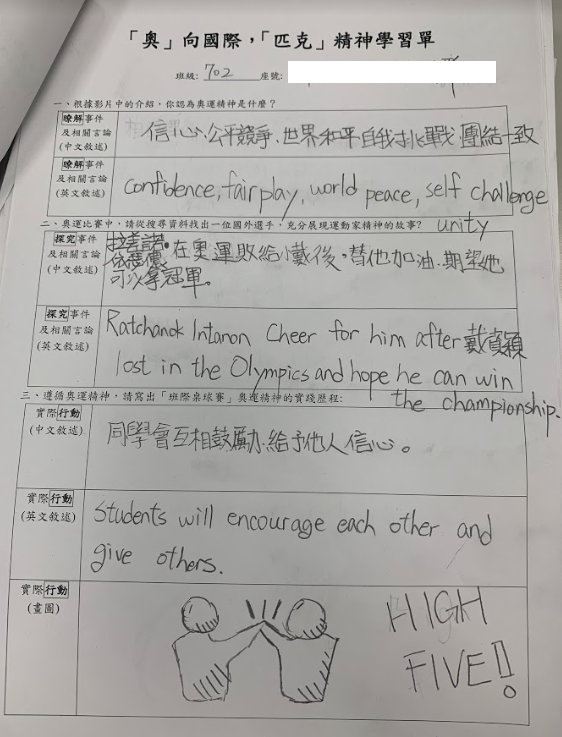 「奧」向國際,「匹克」精神學習單
班級: 702 座號:
一、根據影片中的介紹,你認為奧運精神是什麼?
瞭解事件
及相關言論
(中文敘述)
信心、公平競爭、世界和平自我挑戰、團結一致
瞭解事件
及相關言論
(英文敘述)
confidence, fair play, world peace, self challenge
unity
二、奧運比賽中,請從搜尋資料找出一位國外選手,充分展現運動家精神的故事?
探究事件
及相關言論
(中文敘述)
拉差諾·
依瑟儂
在奧運敗給小戴後,替他加油,期望她
可以拿冠軍。
探究事件
及相關言論
(英文敘述)
Ratchanok Intanon Cheer for him after 戴資穎
lost in the Olympics and hope he can win
the championship.
三、遵循奧運精神,請寫出「班際桌球賽」奧運精神的實踐歷程:
實際行動
(中文敘述)
同學會互相鼓勵、給予他人信心。
實際行動
(英文敘述)
Students will encourage each other and
give others.
實際行動
(畫圖)
HIGH
FIVE!!